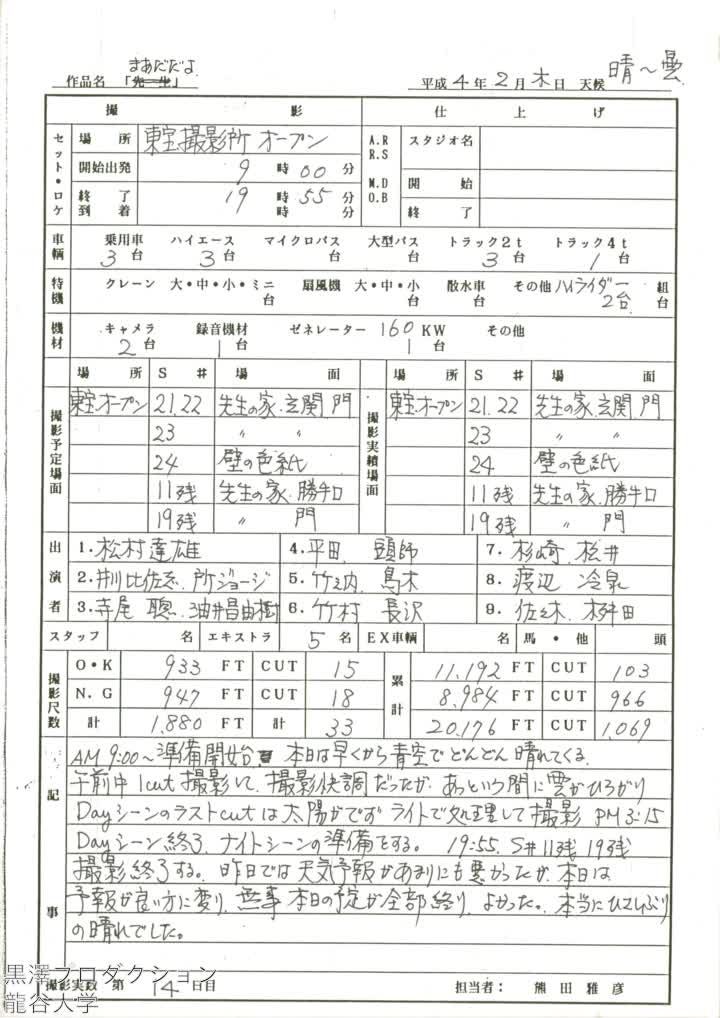 まあだだよ
作品名 「先生」 平成 4 年 2 月 木 日 天候 晴〜曇
撮 影 仕 上 げ
セット・ロケ 場 所 東宝撮影所 オープン A.R R.S スタジオ名
開始出発 9 時 00 分 M.D O.B 開 始
終 了 19 時 55 分 終 了
到 着 時 分
車輌 乗用車 ハイエース マイクロバス 大型バス トラック2t トラック4t
3台 3台 台 台 3台 1台
特機 クレーン 大・中・小・ミニ 扇風機 大・中・小 散水車 その他 ハイライダー 組
台 台 台 2台 台
機材 キャメラ 録音機材 ゼネレーター 160 KW その他
2台 1台 1台
場 所 S # 場 面 場 所 S # 場 面
撮影予定場面 東宝オープン 21.22 先生の家.玄関 門 撮影実績場面 東宝オープン 21.22 先生の家.玄関 門
23 〃 〃 23 〃 〃
24 壁の色紙 24 壁の色紙
11残 先生の家.勝手口 11残 先生の家.勝手口
19残 〃 門 19残 〃 門
出演者 1.松村達雄 4.平田 頭師 7.杉崎 松井
2.井川比佐志 所ジョージ 5.竹之内 鳥木 8.渡辺 冷泉
3.寺尾 聰 油井昌由樹 6.竹村 長沢 9.佐々木 桝田
スタッフ 名 エキストラ 5 名 EX車輌 名 馬・他 頭
撮影尺数 O・K 933 FT CUT 15 累計 11.192 FT CUT 103
N.G 947 FT CUT 18 8.984 FT CUT 966
計 1.880 FT 計 33 20.176 FT CUT 1,069
記事 AM 9:00〜準備開始 本日は早くから青空でどんどん晴れてくる.
午前中 1cut 撮影して、撮影快調だったが あっという間に雲がひろがり
DayシーンのラストcutはS太陽がでず ライトで処理して撮影 PM3:15
Dayシーン終了.ナイトシーンの準備をする。 19:55. S#11残 19残
撮影終了する。 昨日では天気予報があまりにも悪かったが、本日は
予報が良い方に変り、無事 本日の予定が全部終り、よかった。 本当にひさしぶり
の晴れでした。
撮影実数 第 14 日目 担当者: 熊田雅彦
黒澤プロダクション
龍谷大学